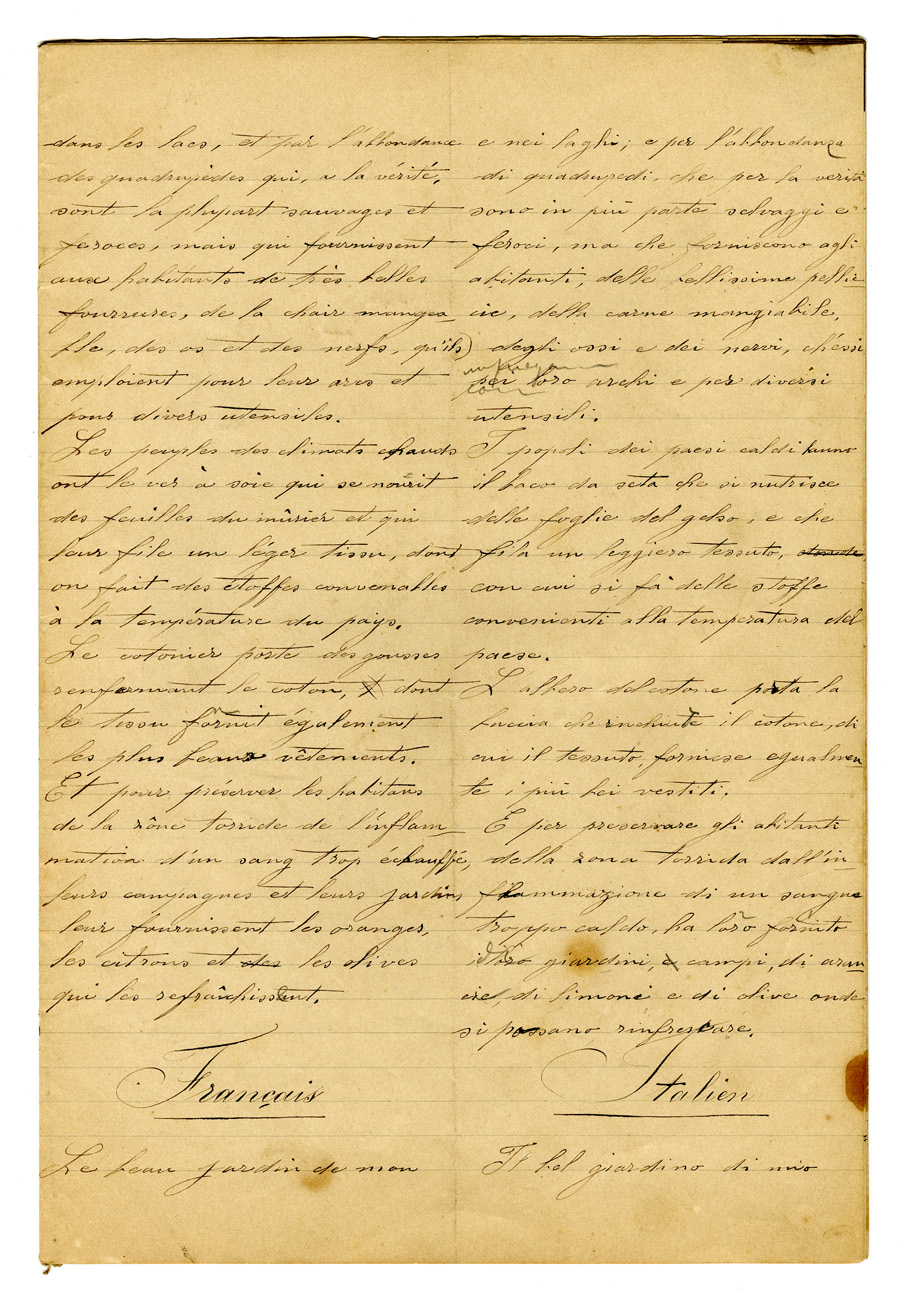 dans les lacs, et par l'abbondance
des quadrupèdes qui, a la vérité,
sont la plupart sauvages et
feroces, mais qui fournissent
aux habitants de très belles
fourrures, de la chair mangea_
ble, des os et des nerfs, qu'ils
emploient pour leur arcs et
pour divers utensiles.
Les peuples des climats chauds
ont le ver à soie qui se nourit
des feuilles du mûrier et qui
leur file un léger tissu, dont
on fait des étoffes convenables
à la température du pays.
Le cotonier porte des gousses
renfermant le coton, dont
le tissu fournit également
les plus beaux vêtements.
Et pour préserver les habitans
de la zône torride de l'inflam_
mation d'un sang trop échauffé,
leurs campagnes et leurs jardins
leur fournissent les oranges,
les citrons et des les olives
qui les refraîchissent.
Français
Le beau jardin de mon
e nei laghi; e per l'abbondanza
di quadrupedi, che per la verità
sono in più parte selvaggi e
feroci, ma che forniscono agli
abitanti, delle bellissime pellic_
cie, della carne mangiabile,
degli ossi e dei nervi, ch'essi
pei loro archi e per diversi
utensili.
I popoli dei paesi caldi hanno
il baco da seta che si nutrisce
delle foglie del gelso, e che
fila un leggiero tessuto,
con cui si fà delle stoffe
convenienti alla temperatura del
paese.
L albero del cotone porta la
buccia che rinchiude il cotone, di
cui il tessuto, fornisce egualmen
te i più bei vestiti.
E per preservare gli abitanti
della zona torrida dall'in_
flammazione di un sangue
troppo caldo, ha loro fornito
giardini, e campi, di aran_
cie, di limoni e di olive onde
si possano rinfrescare.
Italien
Il bel giardino di mio